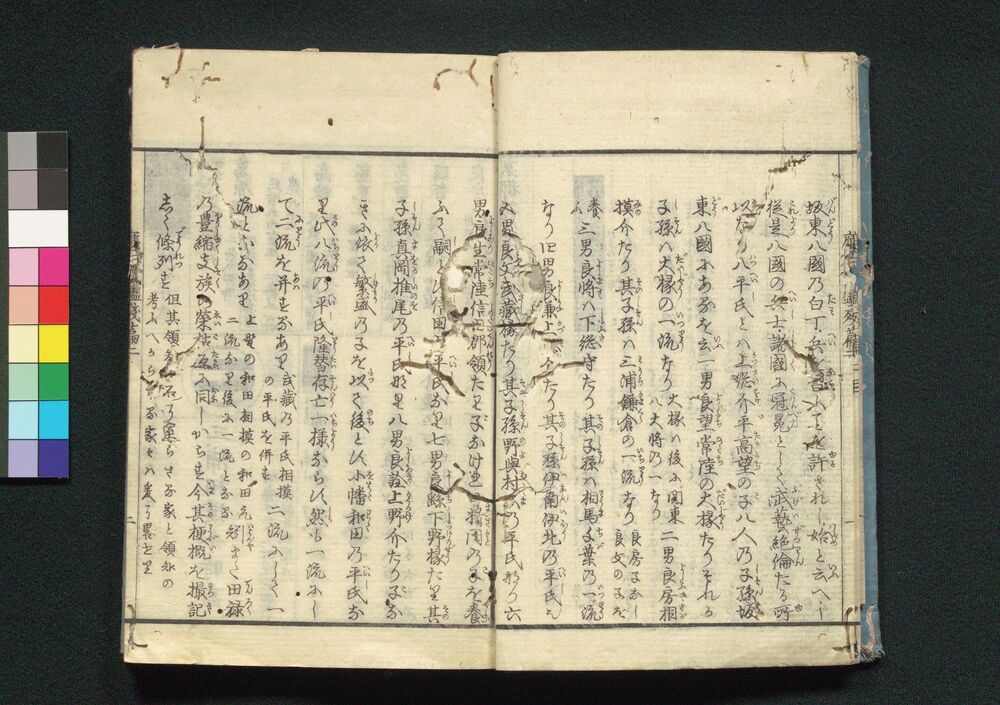 坂東八國乃白丁兵
從是八國の兵士諸國に冠冕として武藝絶倫たる所
以なり八平氏とハ上總介平高望の子八人乃子孫坂
東八國にあるを云一男良望常陸の大掾たりそれか
子孫ハ大掾の一流なり大掾ハ後に関東八大将乃一なり二男良房相
摸介たり其子孫ハ三浦鎌倉の一流なり良房子なし良文の子を
養ふ三男良将ハ下総守たり其子孫ハ相馬千葉乃一流
なり四男良兼上たり其子孫伊南伊北乃平氏
五男良文武藏たり其子孫野與村乃平氏なり六
男良生常陸信田郡領たり子なけ乃子を養
ふて嗣平氏なり七男良繇下野掾たり其
子孫真岡推尾乃平氏なり八男良詮上野介たり子な
きに依て繁盛乃子を以て後とす小幡和田乃平氏な
り此八流乃平氏隆替存亡一様ならす然も一流にし
て二流を并するあり武藏乃平氏相摸の平氏を併す二流にして一
流となるあり上野の和田相摸の和田元二流なり後に一流となる又田禄
乃豊縮支族の榮枯に同しからす今其梗概を撮記
して條列す但其領らさる家と領知の
考ふへからさる家々ハ爰に畧せり